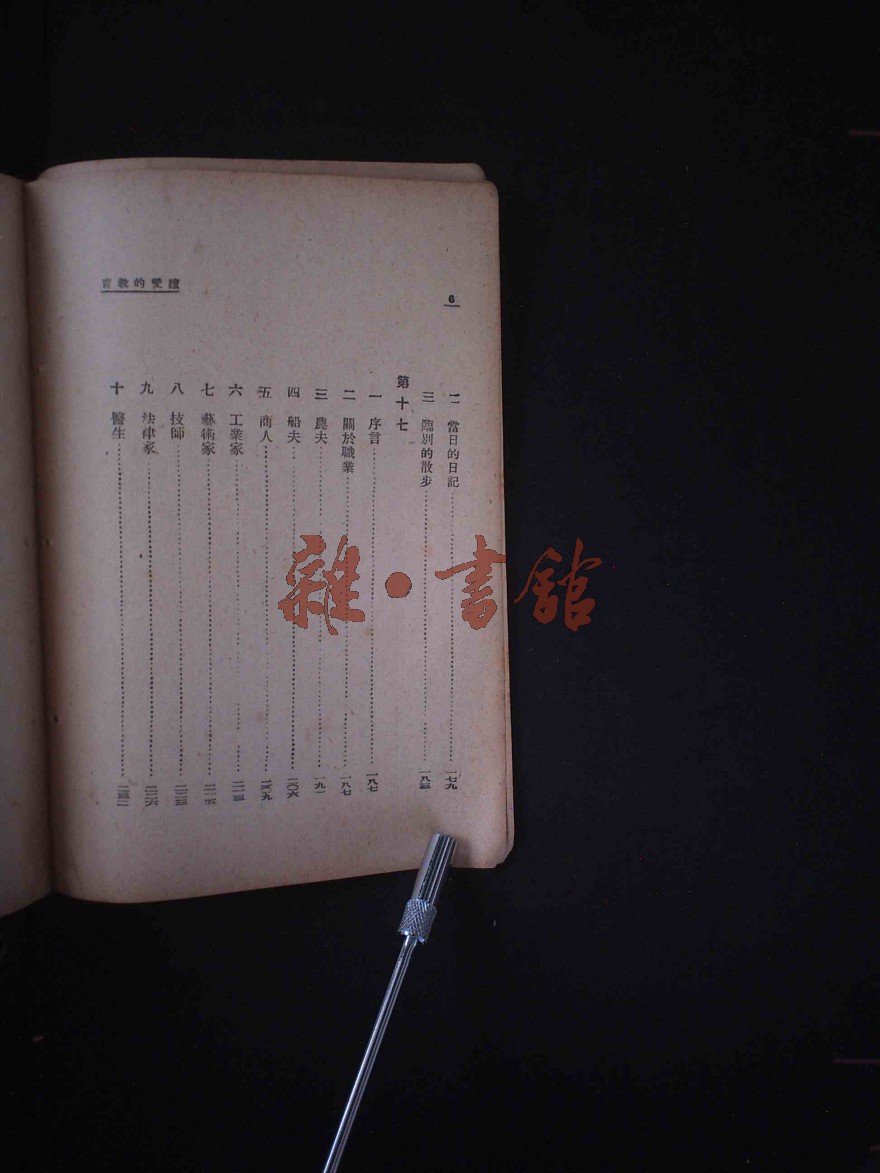 續愛的教育
6
二 當日的日記……一七九
三 臨別的散步……一八三
第十七
一 序言……一八七
二 關於職業……一八七
三 農夫……一九一
四 船夫……二〇六
五 商人……二〇九
六 工業家……
七 藝術家……二一五
八 技師……二二三
九 法律家……二二六
十 醫生……二三二
雜·書館